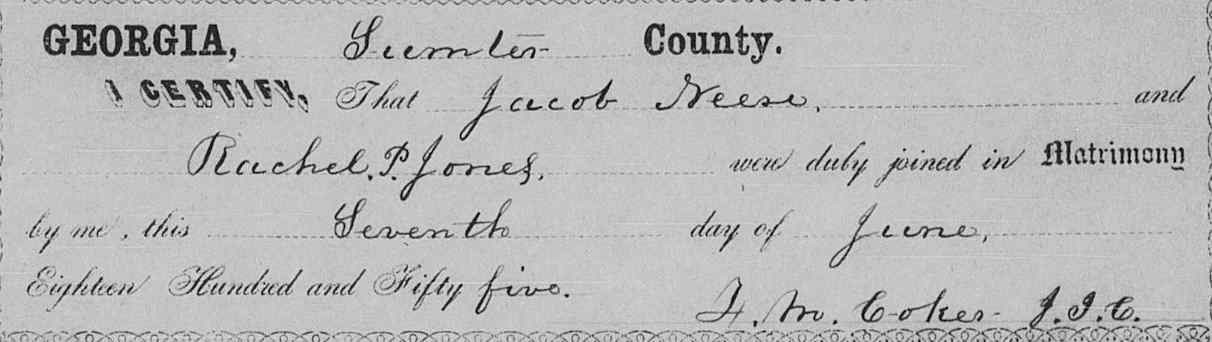 GEORGIA, Sumter County.
I CERTIFY, That Jacob Neese, and
Rachel. P. Jones, were duly joined in Matrimony
by me, this Seventh day of June,
Eighteen Hundred and Fifty five.
F. M. Coker J.I.C.